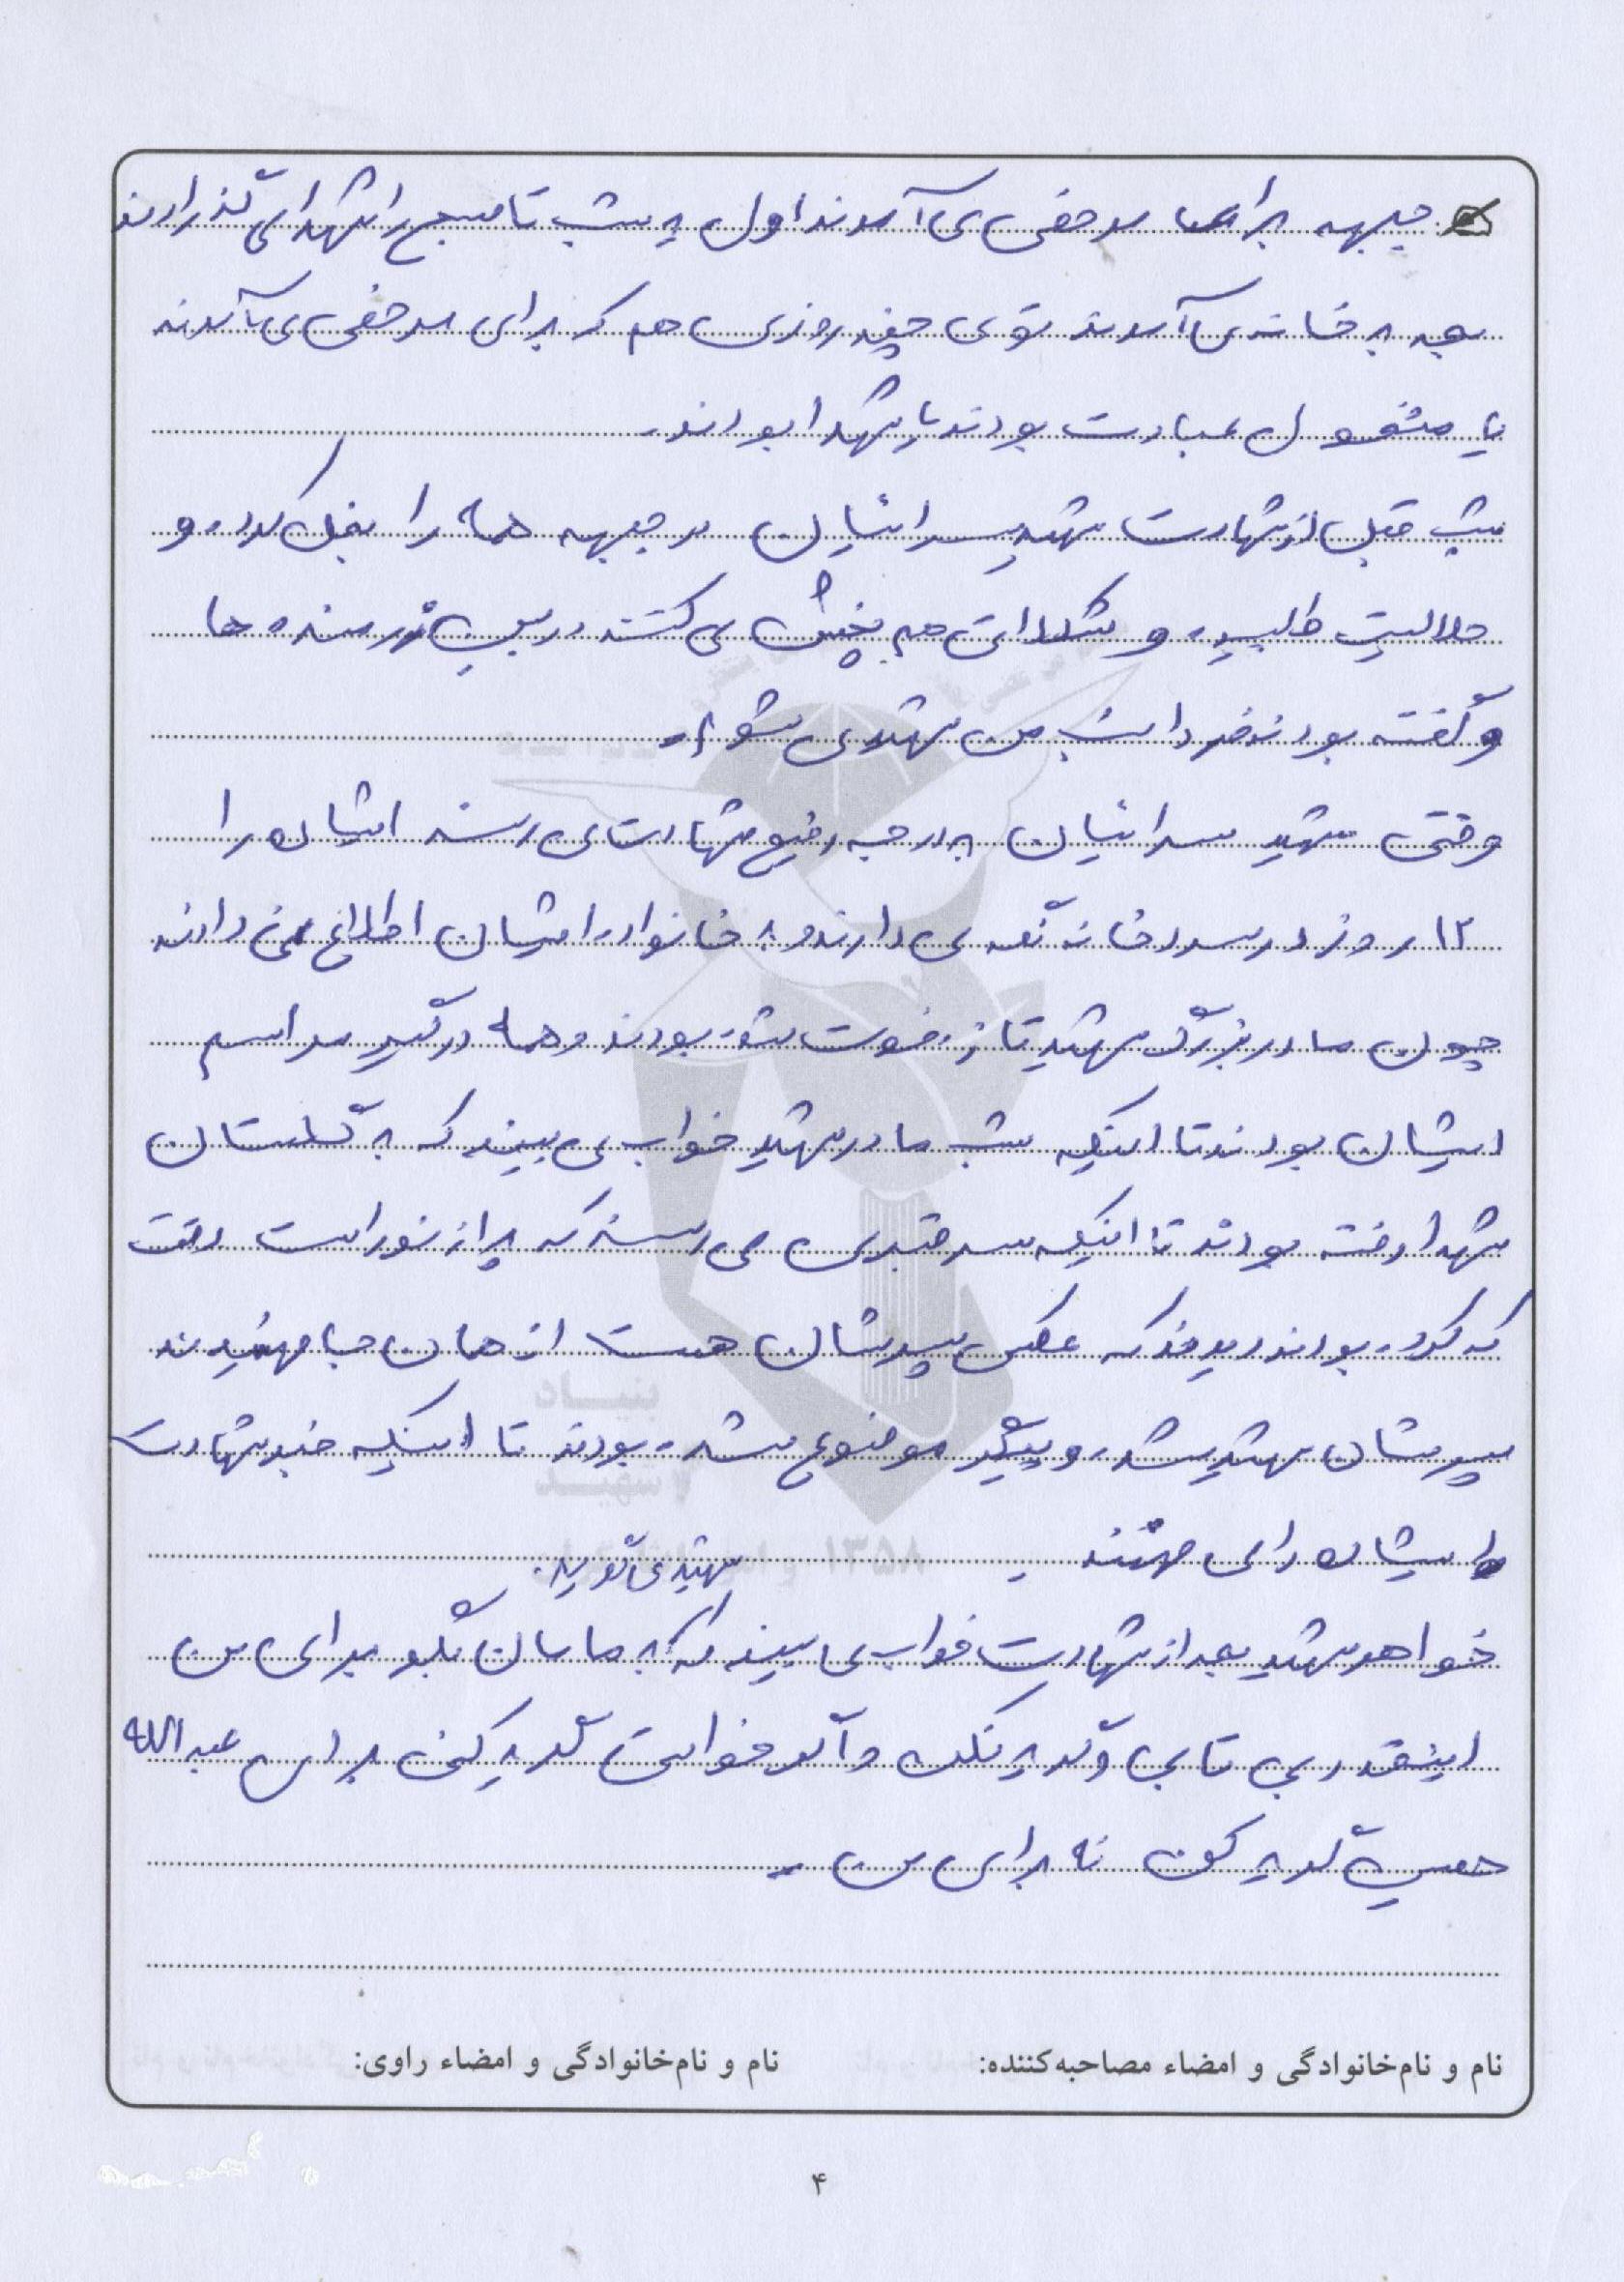 جبهه برای مرخصی می آمدند اول یه شب تا صبح را شهدا می گذراندند
بعد به خانه می آمدند توی چند روزی هم که برای مرخصی می آمدند
یا مشغول عبادت بودند یا شهدا بودند.
شب قبل از شهادت شهید سرائیان در جبهه همه را بغل کرده و
حلالیت طلبیده و شکلات هم پخش می کنند در بین رزمنده ها
و گفته بودند فردا شب من شهید می شوم.
وقتی شهید سرائیان به درجه رفیع شهادت می رسند ایشان را
۱۲ روز در سردخانه نگه می دارند و به خانواده ایشان اطلاع نمی دادند
چون مادربزرگ شهید تازه فوت شده بودند و همه درگیر مراسم
ایشان بودند تا اینکه شب مادر شهید خواب می بیند که به گلستان
شهدا رفته بودند تا اینکه سر قبری می رسند که پر از نور است دقت
که کرده بودند دیدند که عکس پسرشان هست از همان جا فهمیدند
پسرشان شهید شده و پیگیر موضوع شده بودند تا اینکه خبر شهادت
ایشان را می فهمند.
شهید می گوید.
خواهر شهید بعد از شهادت خواب می بیند که به مامان بگو برای من
اینقدر بی تابی و گریه نکن و اگر خواستی گریه کنی برای عبدالله
حسین گریه کن نه برای من.
نام و نام‌خانوادگی و امضاء مصاحبه‌کننده: نام و نام‌خانوادگی و امضاء راوی:
۴